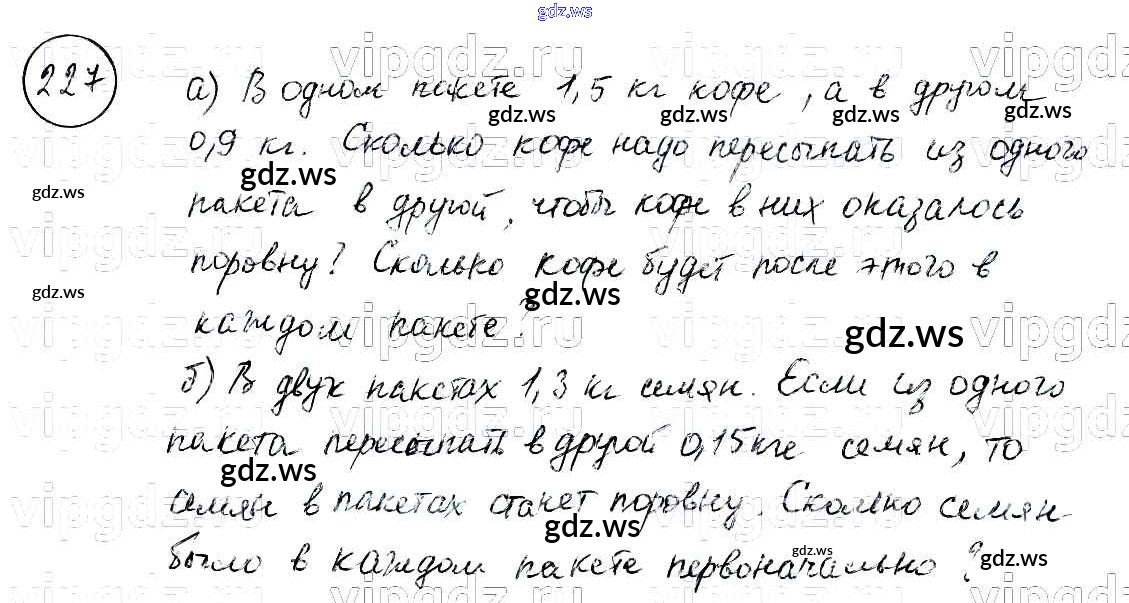 gdz.ws
227
а) В одном пакете 1,5 кг кофе, а в другом
0,9 кг. Сколько кофе надо пересыпать из одного
пакета в другой, чтобы кофе в них оказалось
поровну? Сколько кофе будет после этого в
каждом пакете?
б) В двух пакетах 1,3 кг семян. Если из одного
пакета пересыпать в другой 0,15 кг семян, то
семян в пакетах станет поровну. Сколько семян
было в каждом пакете первоначально?